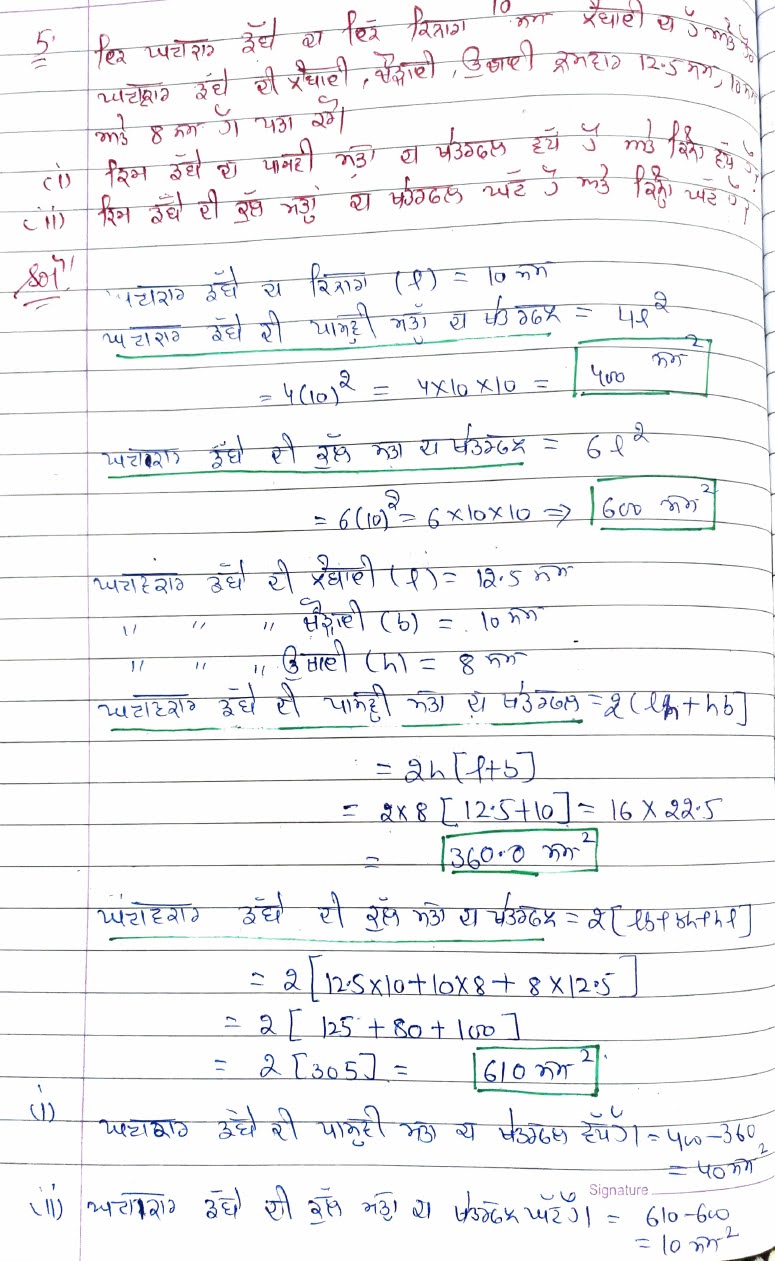 5. ਇਕ ਘਣਾਕਾਰ ਡੱਬੇ ਦਾ ਇਕ ਕਿਨਾਰਾ 10 ਸਮ ਲੰਬਾਈ ਦਾ ਹੈ ਅਤੇ
ਘਣਾਵਕਾਰ ਡੱਬੇ ਦੀ ਲੰਬਾਈ, ਚੌੜਾਈ, ਉਚਾਈ ਕ੍ਰਮਵਾਰ 12.5 ਸਮ, 10 ਸਮ
ਅਤੇ 8 ਸਮ ਹੈ। ਪਤਾ ਕਰੋ।
(i) ਕਿਸ ਡੱਬੇ ਦਾ ਪਾਸਵੀ ਸਤਾ ਦਾ ਖੇਤਰਫਲ ਵੱਧ ਹੈ ਅਤੇ ਕਿੰਨਾ ਵੱਧ ਹੈ।
(ii) ਕਿਸ ਡੱਬੇ ਦੀ ਕੁੱਲ ਸਤਾ ਦਾ ਖੇਤਰਫਲ ਘੱਟ ਹੈ ਅਤੇ ਕਿੰਨਾ ਘੱਟ ਹੈ।
Sol"
ਘਣਾਕਾਰ ਡੱਬੇ ਦਾ ਕਿਨਾਰਾ (l) = 10 ਸਮ
ਘਣਾਕਾਰ ਡੱਬੇ ਦੀ ਪਾਸਵੀ ਸਤਾ ਦਾ ਖੇਤਰਫਲ = 4l²
= 4(10)² = 4×10×10 = 400 ਸਮ²
ਘਣਾਕਾਰ ਡੱਬੇ ਦੀ ਕੁੱਲ ਸਤਾ ਦਾ ਖੇਤਰਫਲ = 6l²
= 6(10)² = 6×10×10 ⇒ 600 ਸਮ²
ਘਣਾਵਕਾਰ ਡੱਬੇ ਦੀ ਲੰਬਾਈ (l) = 12.5 ਸਮ
" " " ਚੌੜਾਈ (b) = 10 ਸਮ
" " " ਉਚਾਈ (h) = 8 ਸਮ
ਘਣਾਵਕਾਰ ਡੱਬੇ ਦੀ ਪਾਸਵੀ ਸਤਾ ਦਾ ਖੇਤਰਫਲ = 2(lh+hb]
= 2h[l+b]
= 2×8 [12.5+10] = 16 × 22.5
= 360.0 ਸਮ²
ਘਣਾਵਕਾਰ ਡੱਬੇ ਦੀ ਕੁੱਲ ਸਤਾ ਦਾ ਖੇਤਰਫਲ = 2[lb+bh+hl]
= 2[12.5×10+10×8+8×12.5]
= 2[125+80+100]
= 2[305] = 610 ਸਮ²
(i) ਘਣਾਕਾਰ ਡੱਬੇ ਦੀ ਪਾਸਵੀ ਸਤਾ ਦਾ ਖੇਤਰਫਲ ਵੱਧ ਹੈ। = 400-360
= 40 ਸਮ²
Signature
(ii) ਘਣਾਕਾਰ ਡੱਬੇ ਦੀ ਕੁੱਲ ਸਤਾ ਦਾ ਖੇਤਰਫਲ ਘੱਟ ਹੈ। = 610-600
= 10 ਸਮ²